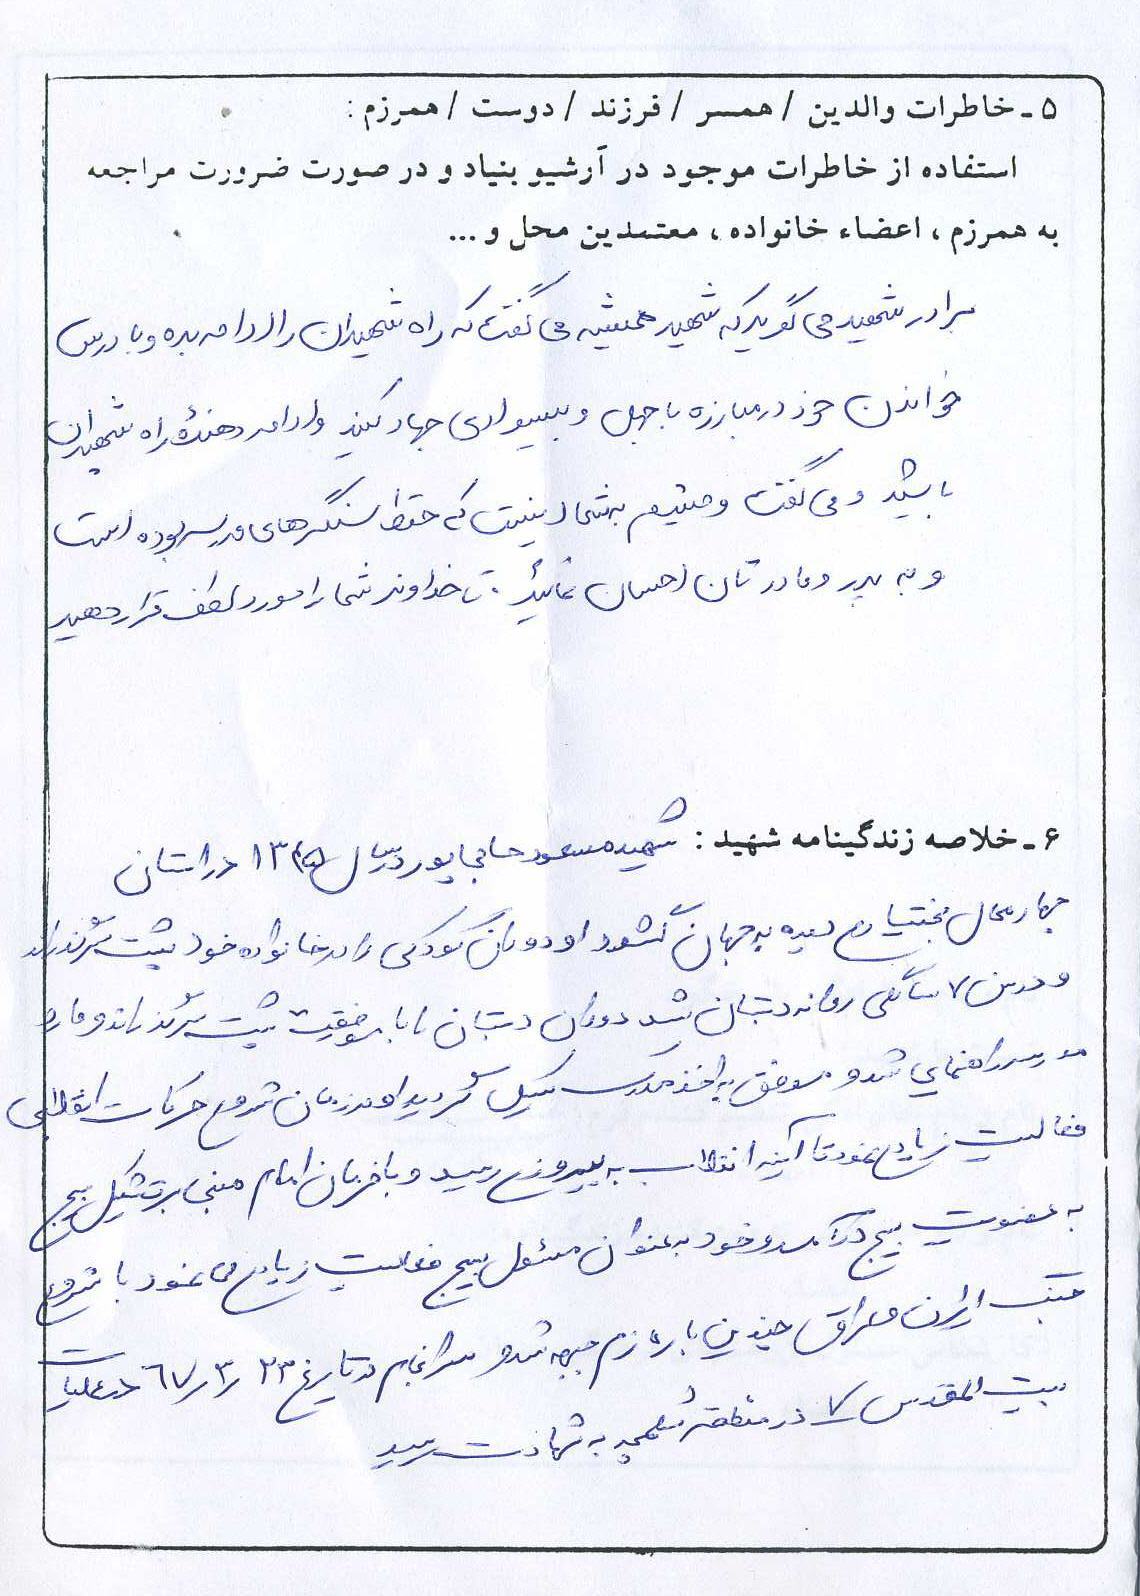 ۵ - خاطرات والدین / همسر / فرزند / دوست / همرزم :
استفاده از خاطرات موجود در آرشیو بنیاد و در صورت ضرورت مراجعه
به همرزم ، اعضاء خانواده ، معتمدین محل و ...
برادر شهید می گوید که شهید همیشه می گفت که راه شهیدان را ادامه بده و با درس
خواندن خود در مبارزه با جهل و بیسوادی جهاد کنید و ادامه دهنده راه شهیدان
باشید و می گفت وصیتم به شما اینست که حفظ سنگرهای مدرسه بوده است
و به پدر و مادرتان احسان نمائید تا خداوند شما را مورد لطف قرار دهید
۶ - خلاصه زندگینامه شهید : شهید مسعود حاجی پور در سال ۱۳۴۵ در استان
چهار محال بختیاری دیده به جهان گشود او دوران کودکی را در خانواده خود پشت سر گذراند
و در سن ۷ سالگی روانه دبستان شد دوران دبستان را با موفقیت پشت سر گذراند و وارد
مدرسه راهنمایی شد و موفق به اخذ مدرک سیکل گردید او در زمان شروع حرکات انقلابی
فعالیت زیادی نمود تا آنکه انقلاب به پیروزی رسید و با فرمان امام مبنی بر تشکیل بسیج
به عضویت بسیج درآمد و خود به عنوان مسئول بسیج فعالیت زیادی می نمود با شروع
جنگ ایران و عراق چندین بار عازم جبهه شد و سرانجام در تاریخ ۲۳ ر ۳ ر ۶۷ در عملیات
بیت المقدس ۷ در منطقه شلمچه به شهادت رسید